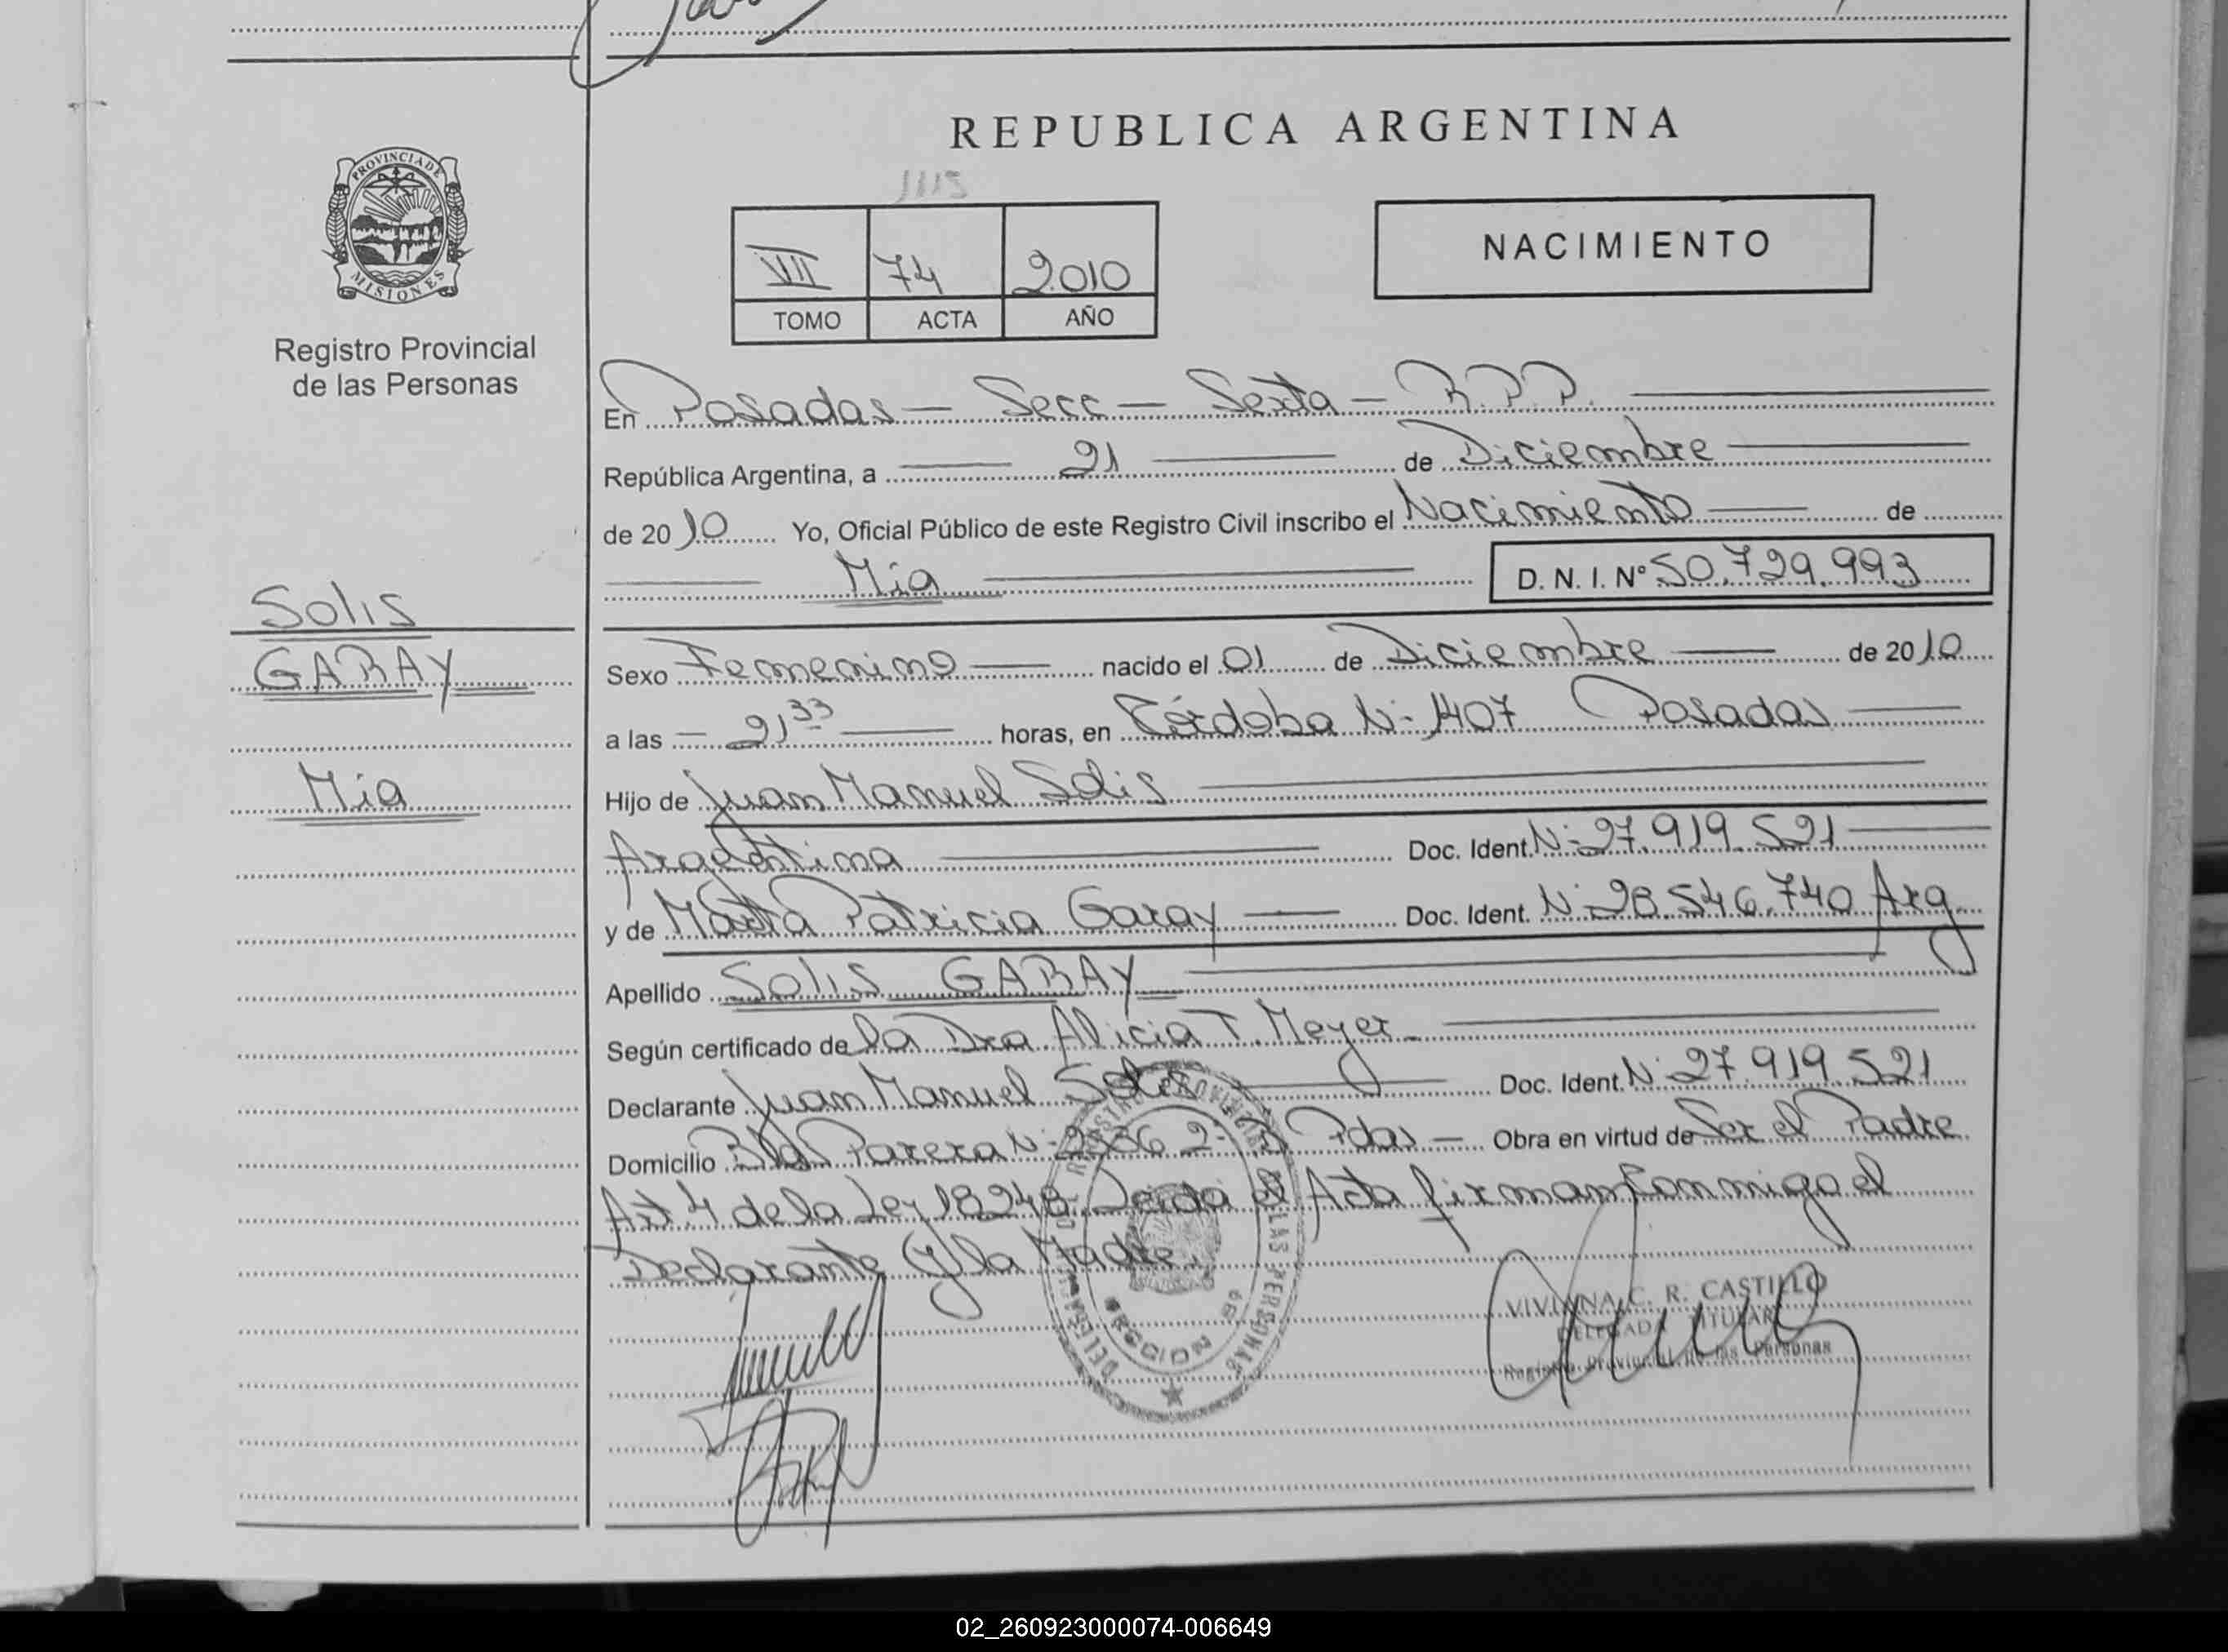 REPUBLICA ARGENTINA
1115
PROVINCIA DE
MISIONES
Registro Provincial
de las Personas
VII 74 2010
TOMO ACTA AÑO
NACIMIENTO
En Posadas - Secc - Sexta - R.P.P.
República Argentina, a 21 de Diciembre
de 2010 Yo, Oficial Público de este Registro Civil inscribo el Nacimiento de
Mía D. N. I. Nº 50.729.993
Solis
GARAY
Mía
Sexo Femenino nacido el 01 de Diciembre de 2010
a las 21 33 horas, en Córdoba Nº 1407 Posadas
Hijo de Juan Manuel Solis
Argentina Doc. Ident. Nº 27.919.521
y de Marta Patricia Garay Doc. Ident. Nº 28.546.740 Arg.
Apellido Solis GARAY
Según certificado de la Dra Alicia T. Meyer
Declarante Juan Manuel Solis Doc. Ident. Nº 27.919.521
Domicilio Parera Nº Pdas - Obra en virtud de Ser el Padre
Art 4 de la Ley 18248- Leida el Acta firman Conmigo el
Declarante y la Madre.
VIVIANA C. R. CASTILLO
DELEGADA TITULAR
Registro Provincial de las Personas
02_260923000074-006649